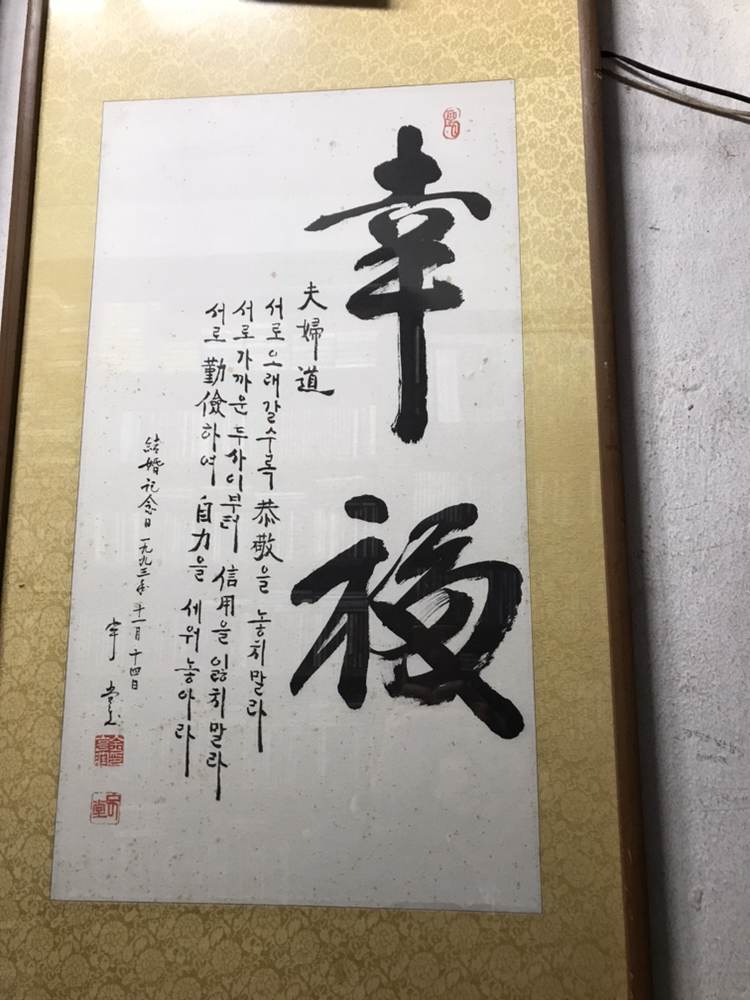 幸福
夫婦道
서로 오래갈수록 恭敬을 놓치말라
서로 가까운 두사이부터 信用을 잃치말라
서로 勤儉하여 自力을 세워 놓아라
結婚記念日 一九九三年 十一月 十四日